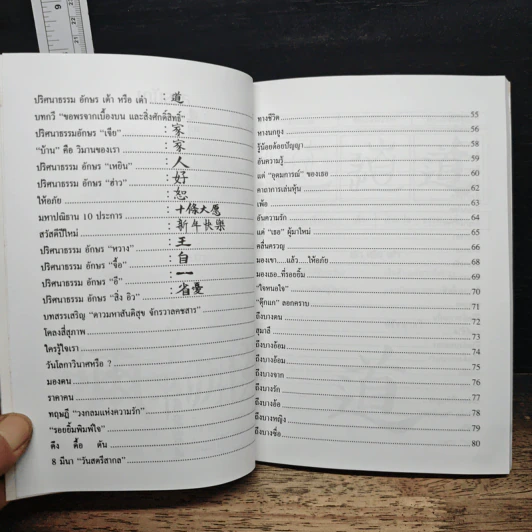 ปริศนาธรรม อักษร เต้า หรือ เต๋า : 道
บทกวี “ขอพรจากเบื้องบน และสิ่งศักดิ์สิทธิ์”
ปริศนาธรรมอักษร “เจีย” : 家
“บ้าน” คือ วิมานของเรา : 家
ปริศนาธรรม อักษร “เหยิน” : 人
ปริศนาธรรม อักษร “ฮ่าว” : 好
ให้อภัย : 恕
มหาปณิธาน 10 ประการ : 十條大愿
สวัสดีปีใหม่ : 新年快樂
ปริศนาธรรม อักษร “หวาง” : 王
ปริศนาธรรม อักษร “จื้อ” : 自
ปริศนาธรรม อักษร “อี” : 一
ปริศนาธรรม อักษร “สิ่ง อิว” : 省憂
บทสรรเสริญ “ดาวมหาสันติสุข จักรวาลคชสาร”
โคลงสี่สุภาพ
ใครรู้ใจเรา
วันโลกาวินาศหรือ ?
มองคน
ราคาคน
ทฤษฎี “วงกลมแห่งความรัก”
“รอยยิ้มพิมพ์ใจ”
ดึง ดื้อ ดัน
8 มีนา “วันสตรีสากล”
ทางชีวิต 55
หางนกยูง 56
รู้น้อยด้อยปัญญา 58
อันความรู้ 59
แด่ “อุดมการณ์” ของเธอ 60
คาถาการเล่นหุ้น 61
เพ้อ 62
อันความรัก 64
แด่ “เธอ” ผู้มาใหม่ 65
คลื่นครวญ 66
มองเขา....แล้ว....ให้อภัย 68
มองเธอ..ที่รอยยิ้ม 69
“ใจทนอใจ” 70
“ตุ๊กแก” ลอกคราบ 71
ถึงบางคน 72
สุมาลี 73
ถึงบางอ้อม 74
ถึงบางอ้อม 75
ถึงบางจาก 76
ถึงบางรัก 77
ถึงบางล้อ 78
ถึงบางหญิง 79
ถึงบางซื่อ 80